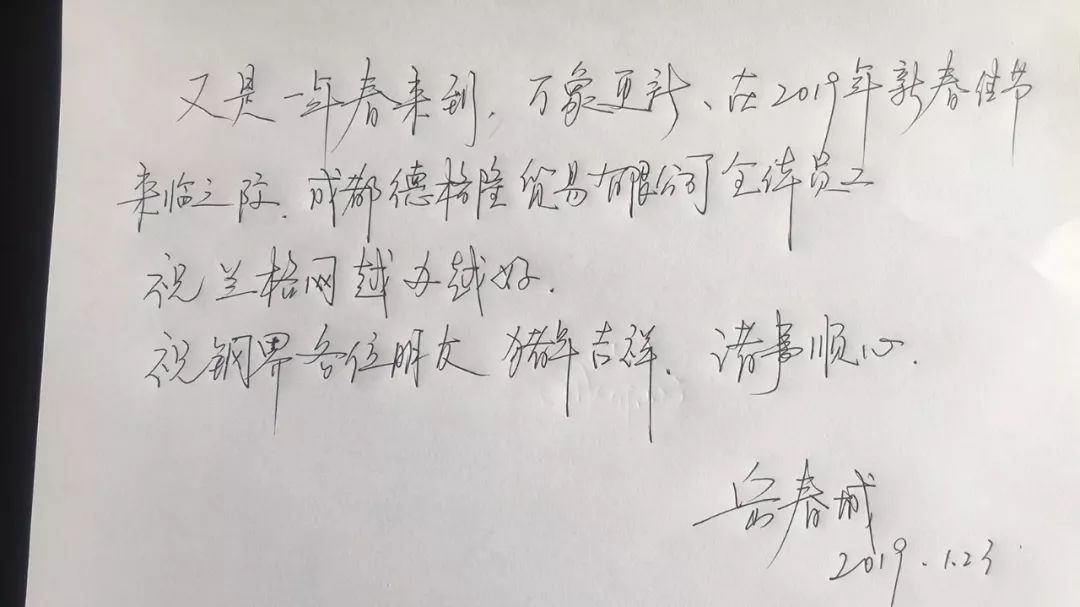 又是一年春来到，万象更新、在2019年新春佳节
来临之际，成都德格隆贸易有限公司全体员工
祝兰格网越办越好．
祝钢界各位朋友 猪年吉祥，诸事顺心．
岳春城
2019.1.23